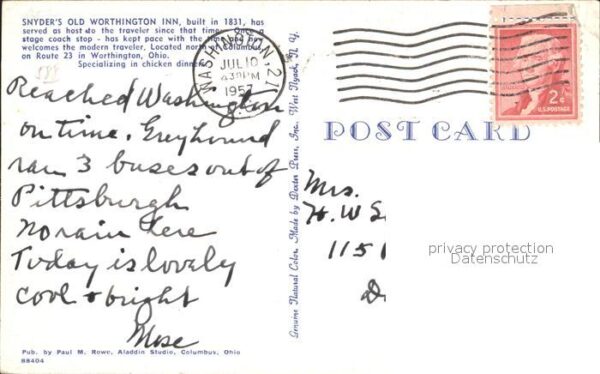 SNYDER'S OLD WORTHINGTON INN, built in 1831, has
served as host to the traveler since that time. Once a
stage coach stop - has kept pace with the time and now
welcomes the modern traveler. Located north of Columbus,
on Route 23 in Worthington, Ohio.
Specializing in chicken dinners.
Reached Washington
on time. Greyhound
ran 3 buses out of
Pittsburgh
no rain here
Today is lovely
cool + bright
Mose
Pub. by Paul M. Rowe, Aladdin Studio, Columbus, Ohio
88404
Genuine Natural Color, Made by Dexter Press, Inc., West Nyack, N. Y.
WASHINGTON, 21
JUL 10
430PM
1957
D.C.
2¢
U.S. POSTAGE
POST CARD
Mrs.
H. W S
1151
privacy protection
Datenschutz